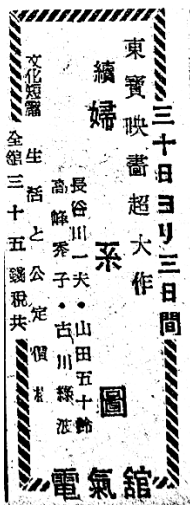 三十日ヨリ三日間
東寶映畫超大作
續婦系圖
長谷川一夫・山田五十鈴
高峰秀子・古川綠波
文化短篇
生活と公定價格
全舘三十五錢稅共
電氣舘